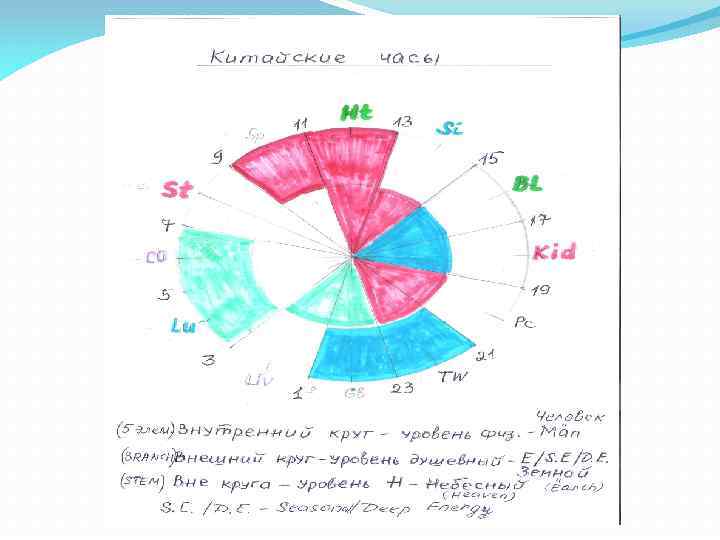 Китайские часы
Sp 11 Ht 13 Si
9 15
St BL
7 17
CO Kid
5 19
Lu Pc
3 21
Liv 1 GB 23 TW
Человек
(5 элем) Внутренний круг - уровень физ. - Man
(BRANCH) Внешний круг - уровень душевный - E/S.E/D.E.
Земной
(STEM) Вне круга - уровень H - Небесный (Earch)
(Heaven)
S.E. /D.E. - Seasonal/Deep Energy